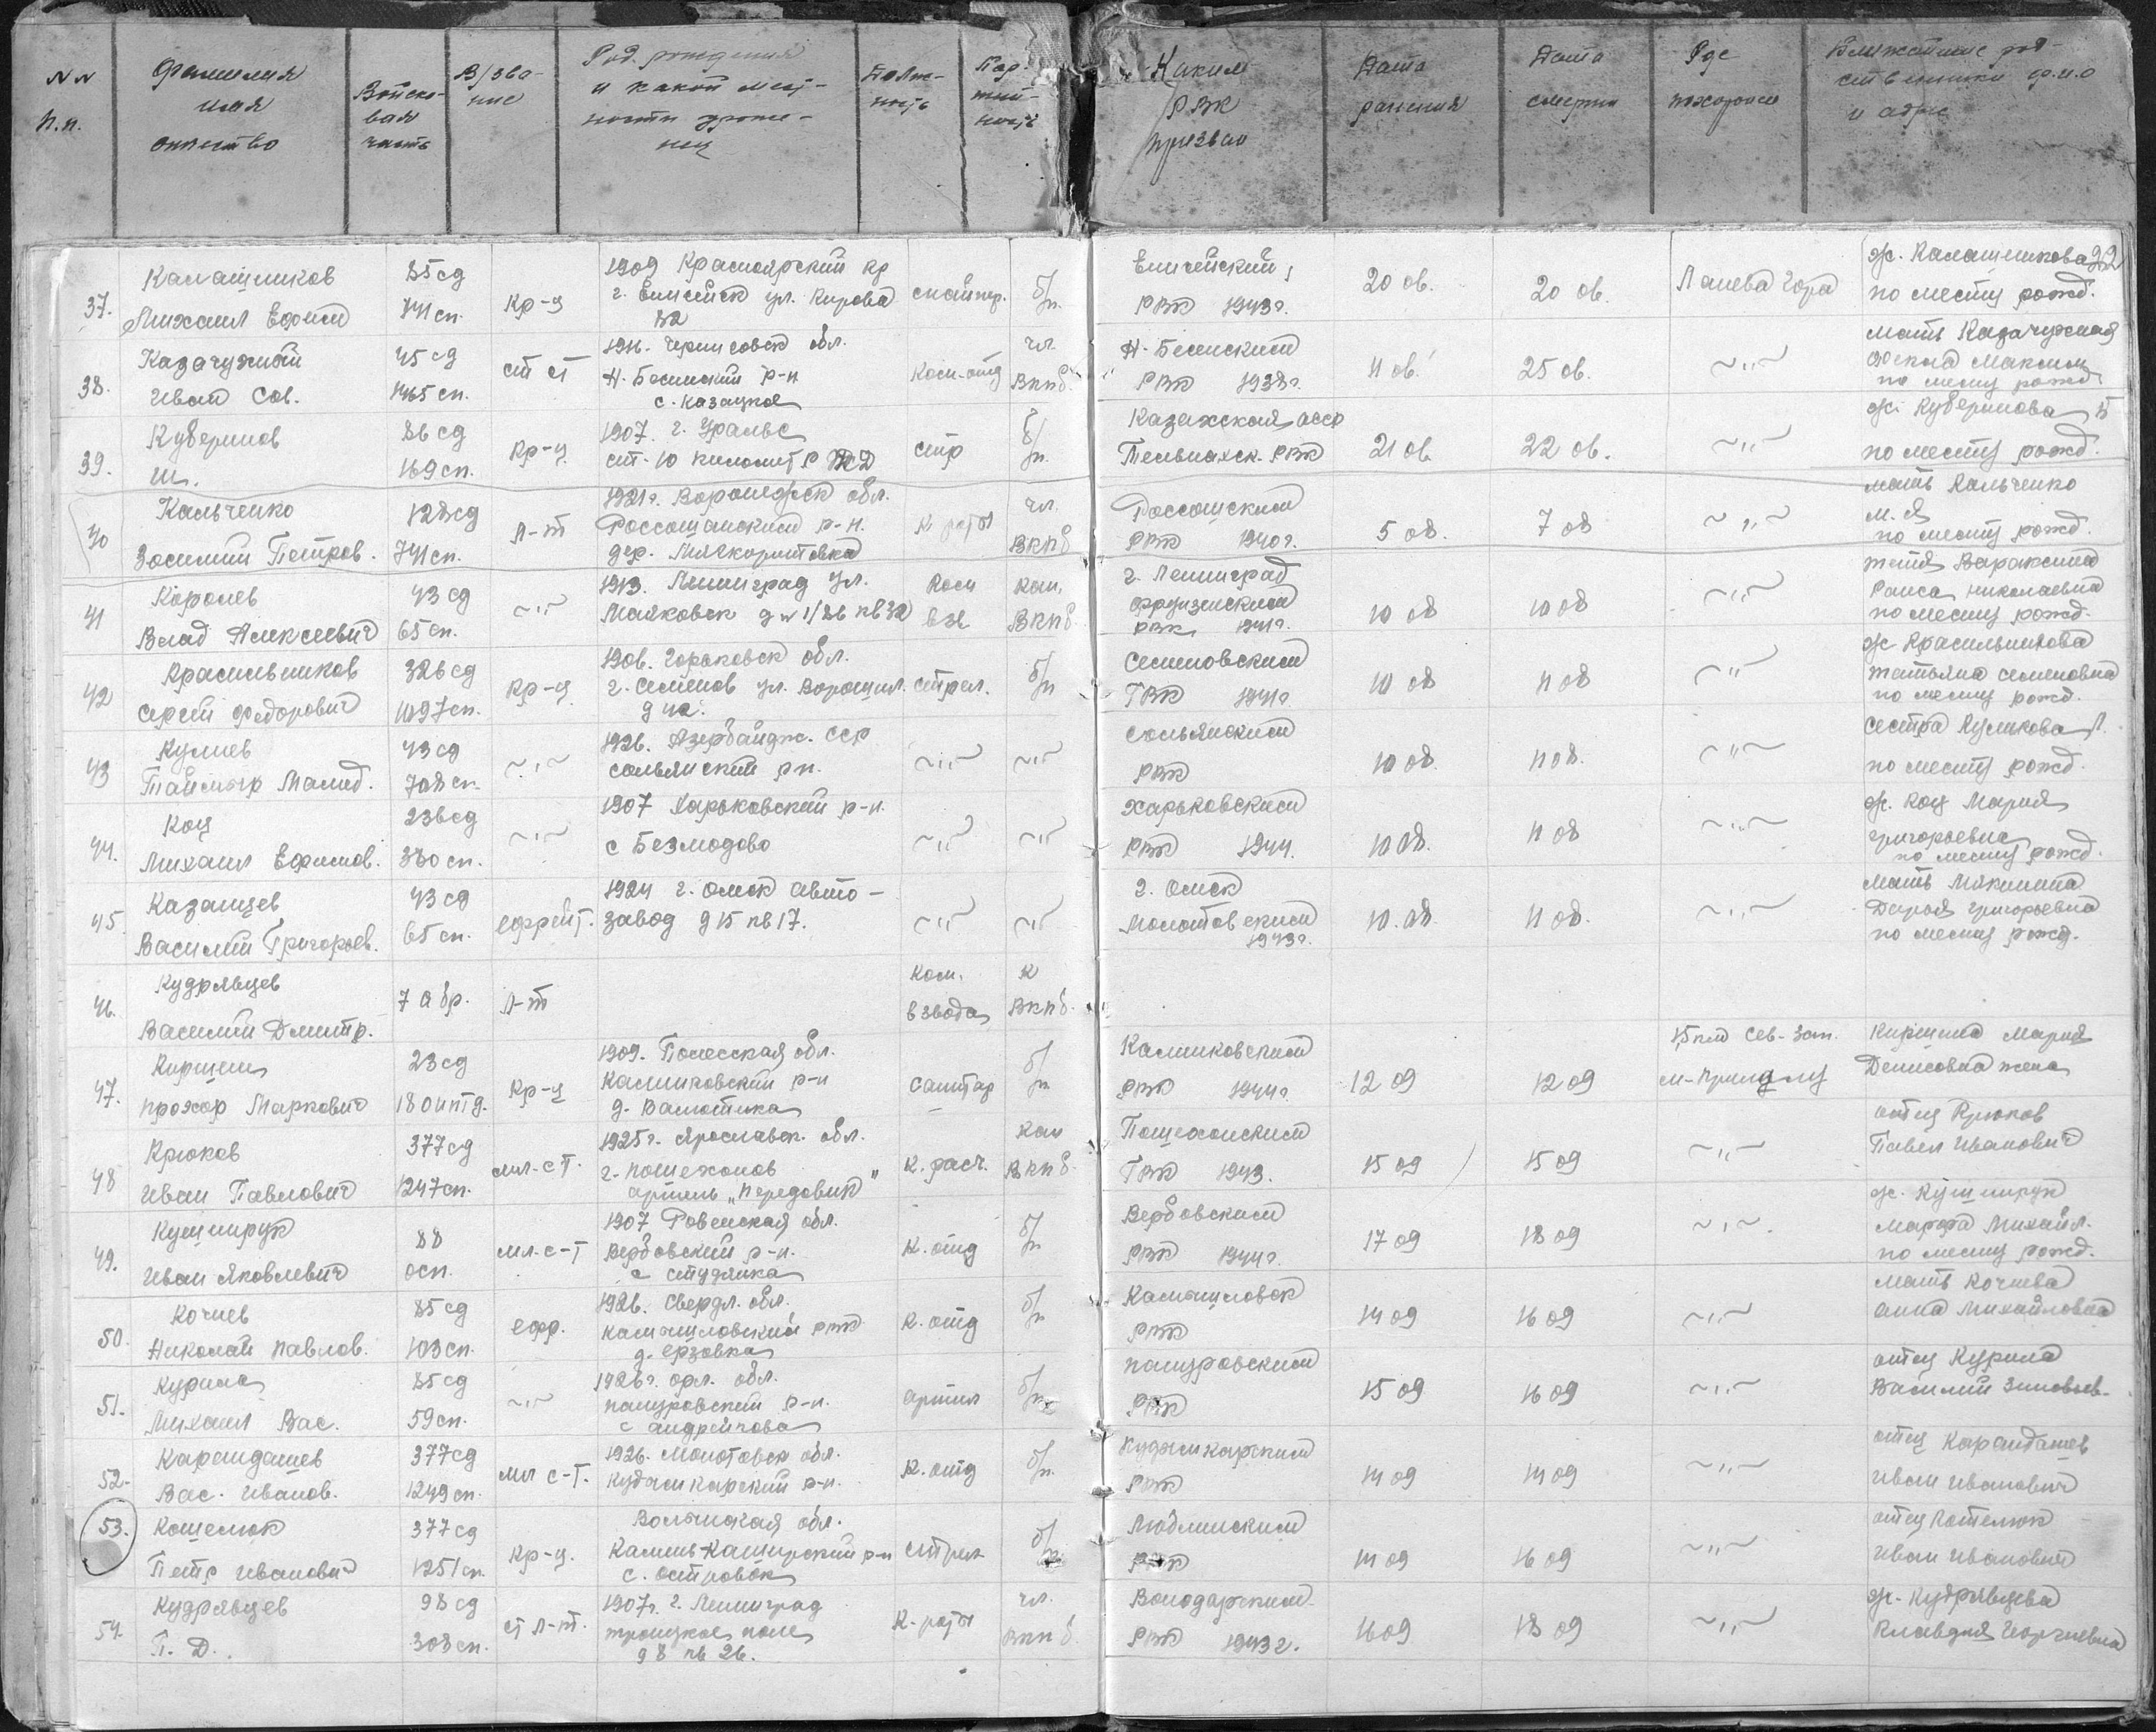 NN п.п.
Фамилия имя отчество
Войсковая часть
В/звание
Год рождения и какой местности уроженец
Должность
Партийность
Каким РВК призван
Дата ранения
Дата смерти
Где похоронен
Ближайшие родственники ф.и.о и адрес
37. Калашников Михаил Ефим 85 сд 141 сп. Кр-ц 1909 Красноярский кр г. Енисейск ул. Кирова снайпер. б/п. Енисейский РВК 1943г. 20 06. 20 06. Панева Гора ж. Калашникова по месту рожд.
22
38. Казачужный Иван Сав. 45 сд 1465 сп. ст ст 1916. Черниговск обл. Н-Басанский р-н с. Казацкое Ком-отд чл. ВКПб. Н-Басанским РВК 1938г. 11 06. 25 06. ~"~ мать Казачужная Максим по месту рожд
39. Куберинов Ш. 86 сд 169 сп. Кр-ц 1907. г. Уральс ст. 10 километр стр б/п. Казахская асср Тельманск. РВК 21 06 22 06. ~"~ ж. Куберинова по месту рожд.
40 Кальченко Василий Петров. 128 сд 741 сп. Л-т 1921г. Воронежск обл. Россошанским р-н. дер. К роты чл. ВКПб Россошским РВК 1940г. 5 08. 7 08 ~"~ мать Кальченко М. Я по месту рожд.
41 Королев Влад Алексеевич 43 сд 65 сп. ~"~ 1913. Ленинград ул. Маяковск д N 1/26 кв 32 Ком взв кан. ВКПб г. Ленинград Фрунзенским РВК 1941г. 10 08 10 08 ~"~ тетя Вараксина Раиса Николаевна по месту рожд.
42 Красильников Сергей Федорович 326 сд 1097 сп. Кр-ц 1906. Горьковск обл. г. Семенов ул. Ворошил. стрел. б/п Семеновским ГВК 1941г. 10 08 11 08 ~"~ ж Красильникова Татьяна Семеновна по месту рожд.
43 Кулиев Таймыр Мамед. 43 сд 708 сп. ~"~ 1926. Азербайдж. сср сальянский р-н. ~"~ ~"~ Сальянским РВК 10 08. 11 08. ~"~ сестра Куликова Л. по месту рожд.
44. Коц Михаил Ефимов. 236 сд 380 сп. ~"~ 1907 Харьковский р-н. с Безмодово ~"~ ~"~ Харьковским РВК 1944. 10 08. 11 08 ~"~ ж. Коц Мария Григорьевна по месту рожд.
45. Казанцев Василий Григорьев. 43 сд 65 сп. ефрейт. 1924 г. Омск авто-завод д 15 кв 17. ~"~ ~"~ г. Омск Молотовским 1943г. 10. 08. 11 08. ~"~ мать Микишина Дарья Григорьевна по месту рожд.
46. Кудрявцев Василий Дмитр. 7 абр. Л-т ком. взвода К ВКПб.
47. Киршеня Прохор Маркович 23 сд 180 иптд. Кр-ц 1909. Полесская обл. Калинковский р-н д. Ванюжика санитар б/п Калинковским РВК 1944г. 12 09 12 09 1,5 км Сев-Зап. м-Приилцу Киршеня Мария Денисовна жена
48 Крюков Иван Павлович 377 сд 1247 сп. мл. с-т. 1925г. Ярославск. обл. г. Пошехонов артель „Передовик" К. расч. кан ВКПб. Пошехонским ГВК 1943. 15 09 15 09 ~"~ отец Крюков Павел Иванович
49. Кушнирук Иван Яковлевич 88 осп. мл. с-т 1907 Ровенская обл. Вербовский р-н. с студянка К. отд б/п Вербовским РВК 1944г. 17 09 18 09 ~"~ ж. Кушнирук Марфа Михайл. по месту рожд.
50. Кочнев Николай Павлов. 85 сд 103 сп. ефр. 1926. Свердл. обл. Камышловский РВК д. Ерзовка К. отд б/п Камышловск РВК 14 09 16 09 ~"~ мать Кочнева Анна Михайловна
51. Курила Михаил Вас. 85 сд 59 сп. ~"~ 1926г. орл. обл. р-н. с Андрейчова артил б/п РВК 15 09 16 09 ~"~ отец Курила Василий Зиновьев.
52. Карандашев Вас. Иванов. 377 сд 1249 сп. мл с-т. 1926. Молотовск обл. Кудымкарский р-н. К. отд б/п. Кудымкарским РВК 14 09 14 09 ~"~ отец Карандашев Иван Иванович
53. Кошелюк Петр Иванович 377 сд 1251 сп. Кр-ц. Волынская обл. Камень-Каширский р-н с. островок стрел б/п Люблинским РВК 14 09 16 09 ~"~ отец Кошелюк Иван Иванович
54. Кудрявцев П. Д. 98 сд 308 сп. ст л-т. 1907г. г. Ленинград троицкое поле д 8 кв 26. К-роты чл. ВКПб Володарским РВК 1943г. 16 09 18 09 ~"~ ж. Кудрявцева Клавдия